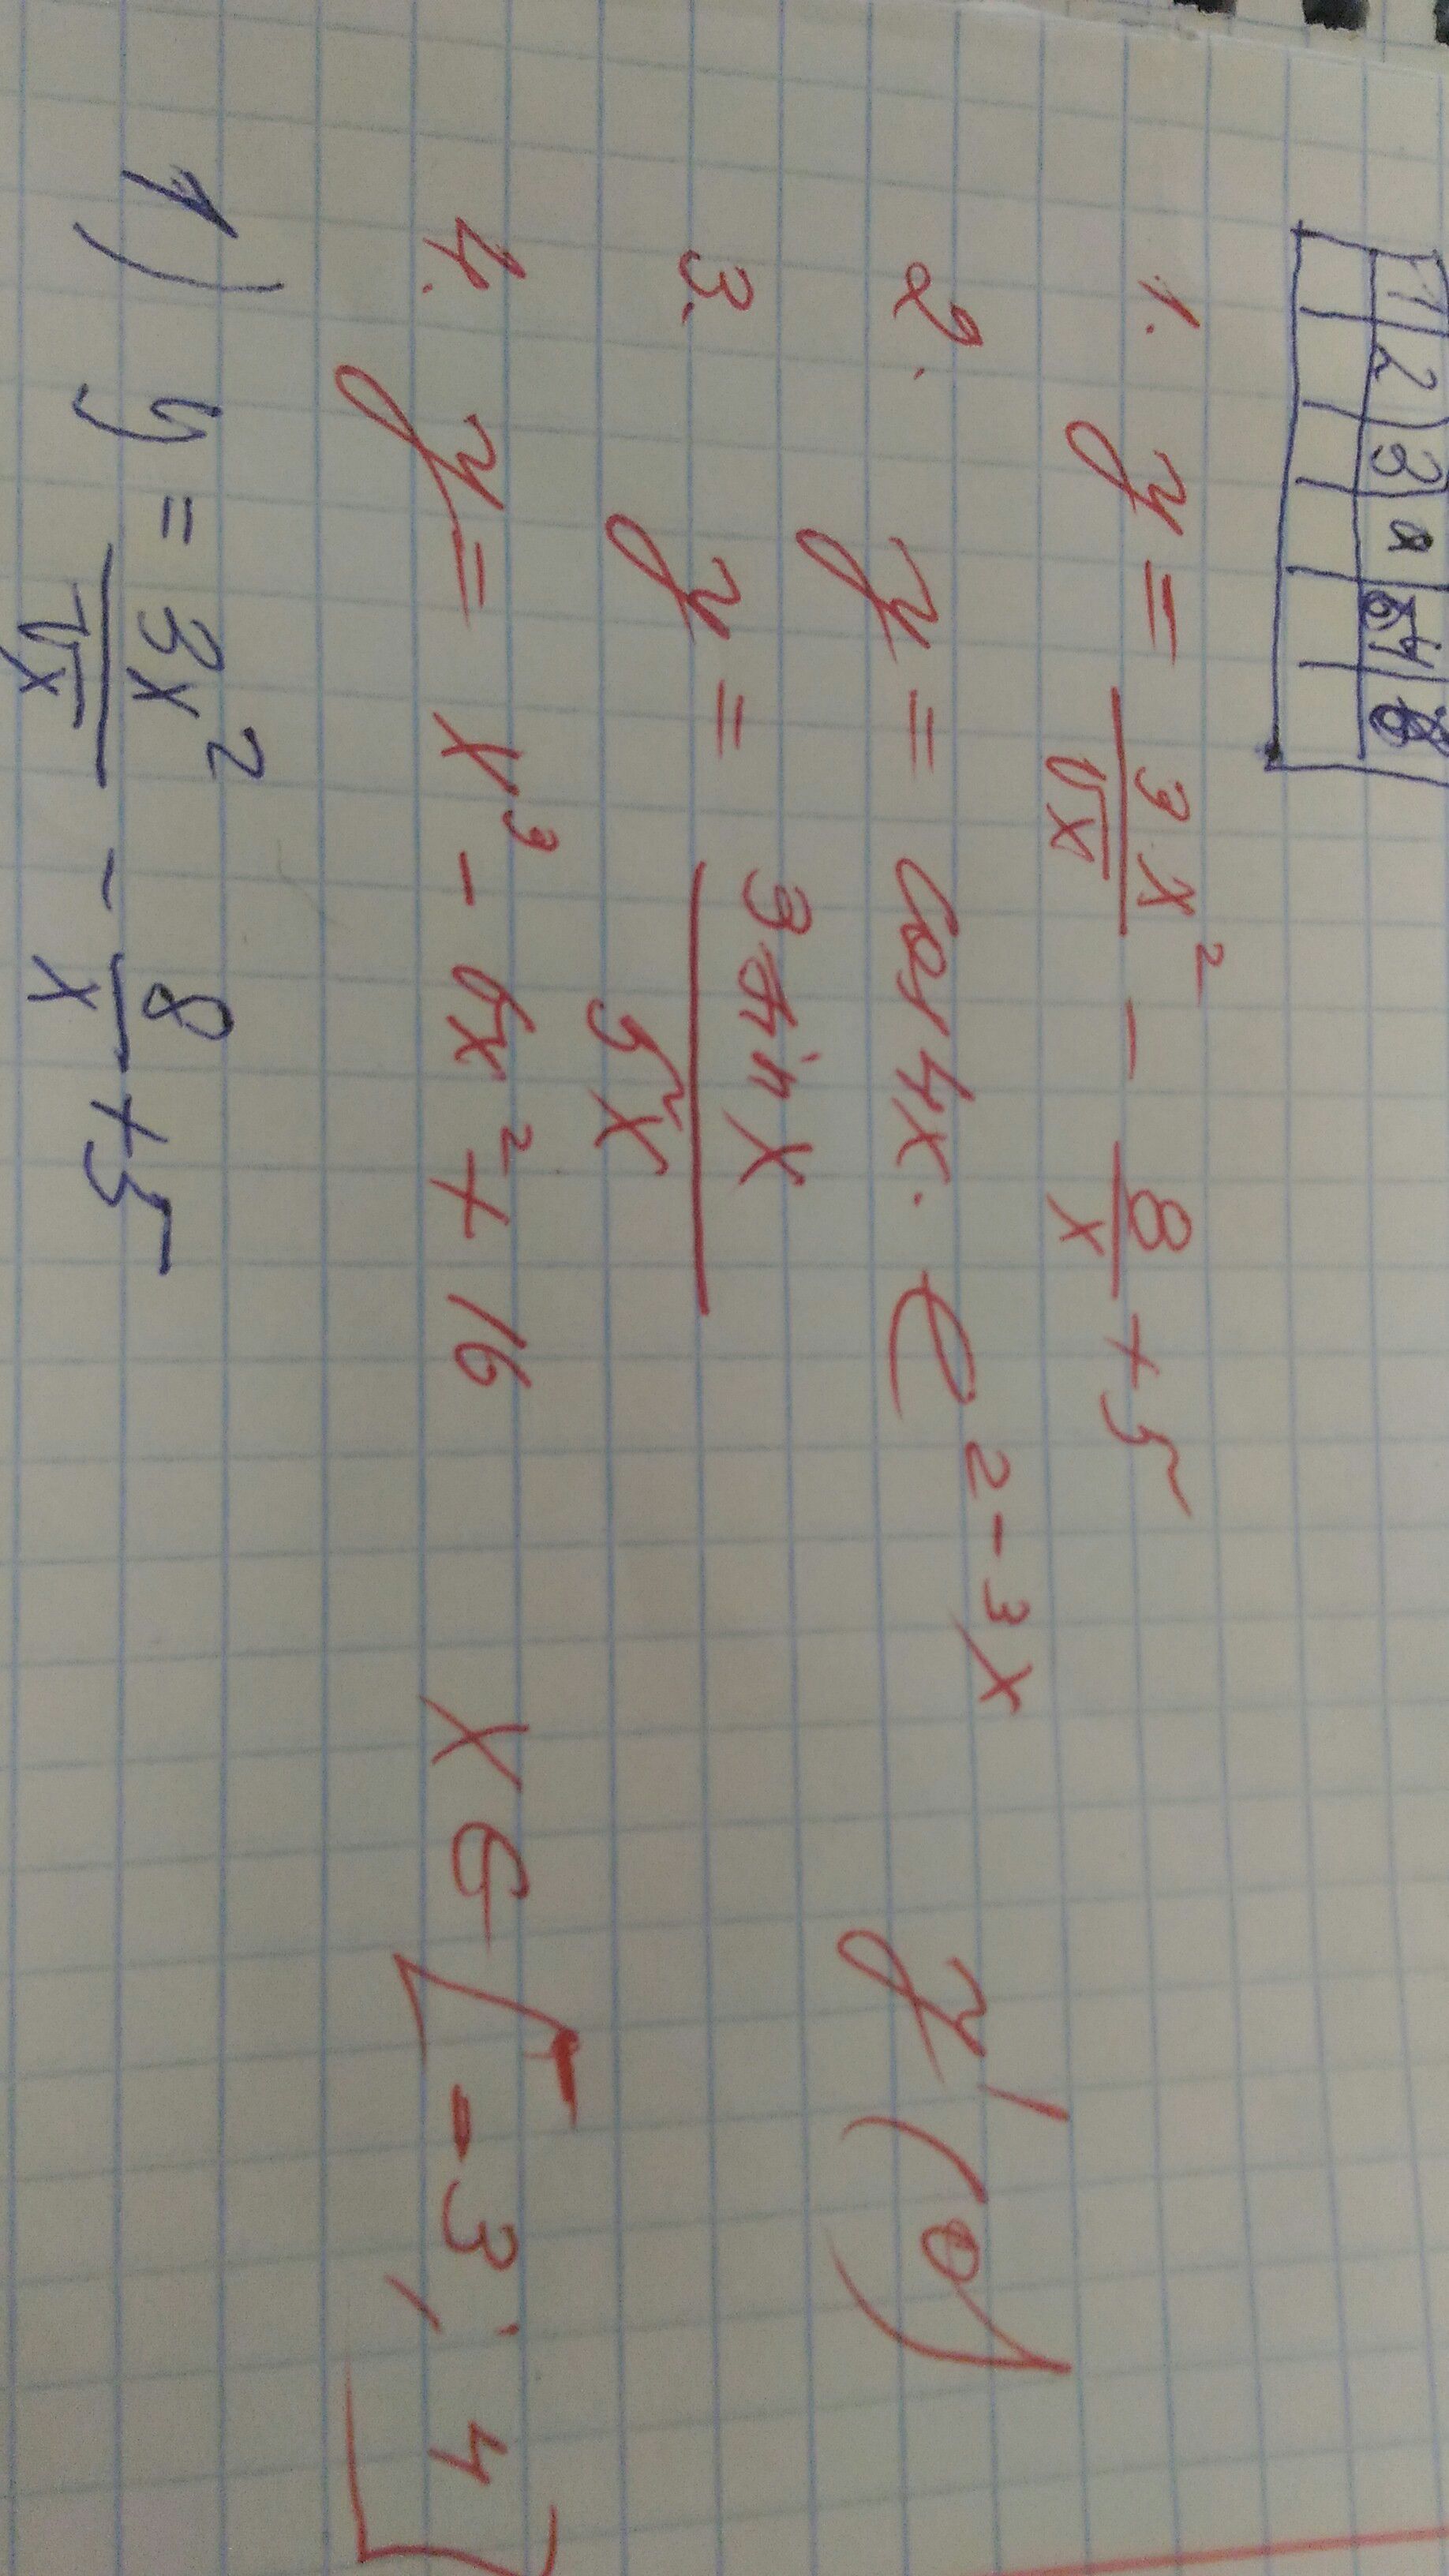 1 2 3 2 54 8
1. y = 3x²/√x - 8/x + 5
2. y = cos 4x · e^(2-3x) y'(0)
3. y = 3 sin x / 5x
4. y = x³ - 6x² + 16 x ∈ [-3; 4]
1) y = 3x²/√x - 8/x + 5